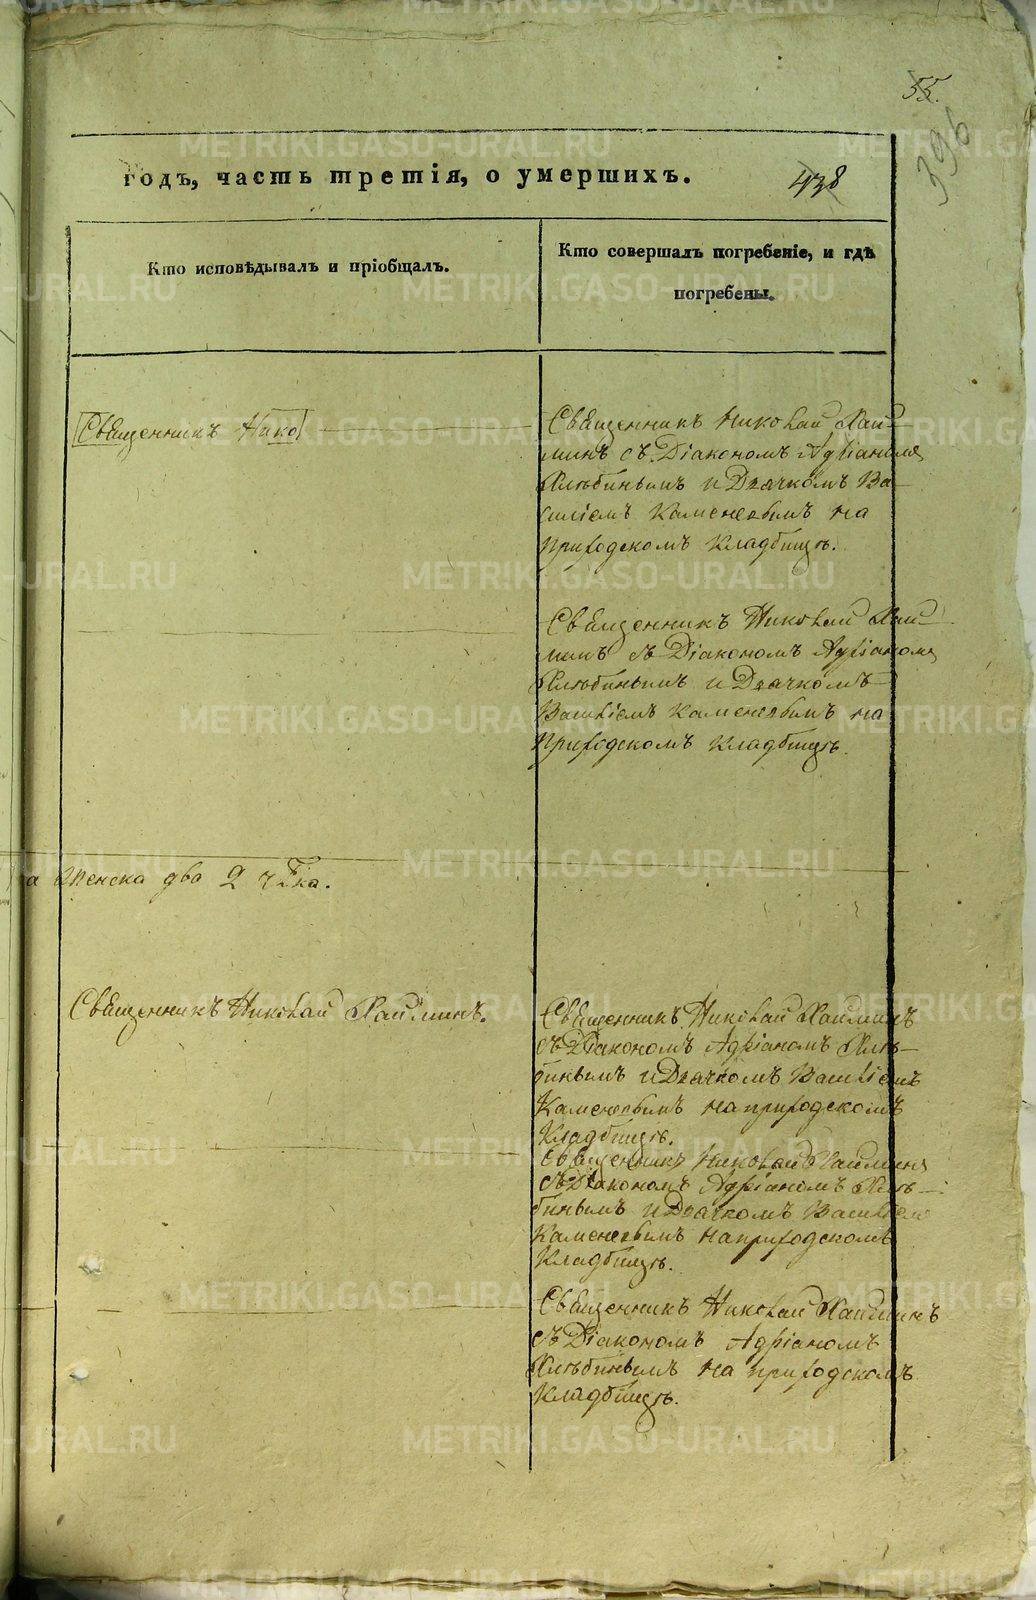 55.
396
годъ, часть третія, о умершихъ.
438
Кто исповѣдывалъ и пріобщалъ.
Кто совершалъ погребеніе, и гдѣ
погребены.
Священникъ Нико
Священникъ Николай Хай-
минъ съ Діакономъ Адріаномъ
Хлѣбинымъ и Дьячкомъ Ва-
силіемъ Каменевымъ на
приходскомъ кладбищѣ.
Священникъ Николай Хай-
минъ съ Діакономъ Адріаномъ
Хлѣбинымъ и Дьячкомъ
Василіемъ Каменевымъ на
приходскомъ кладбищѣ.
женска два 2 ч
Священникъ Николай Хайминъ.
Священникъ Николай Хайминъ
съ Діакономъ Адріаномъ Хлѣ-
бинымъ и Дьячкомъ Василіемъ
Каменевымъ на приходскомъ
кладбищѣ.
Священникъ Николай Хайминъ
съ Діакономъ Адріаномъ Хлѣ-
бинымъ и Дьячкомъ Василіемъ
Каменевымъ на приходскомъ
кладбищѣ.
Священникъ Николай Хайминъ
съ Діакономъ Адріаномъ
Хлѣбинымъ на приходскомъ
кладбищѣ.
METRIKI.GASO-URAL.RU